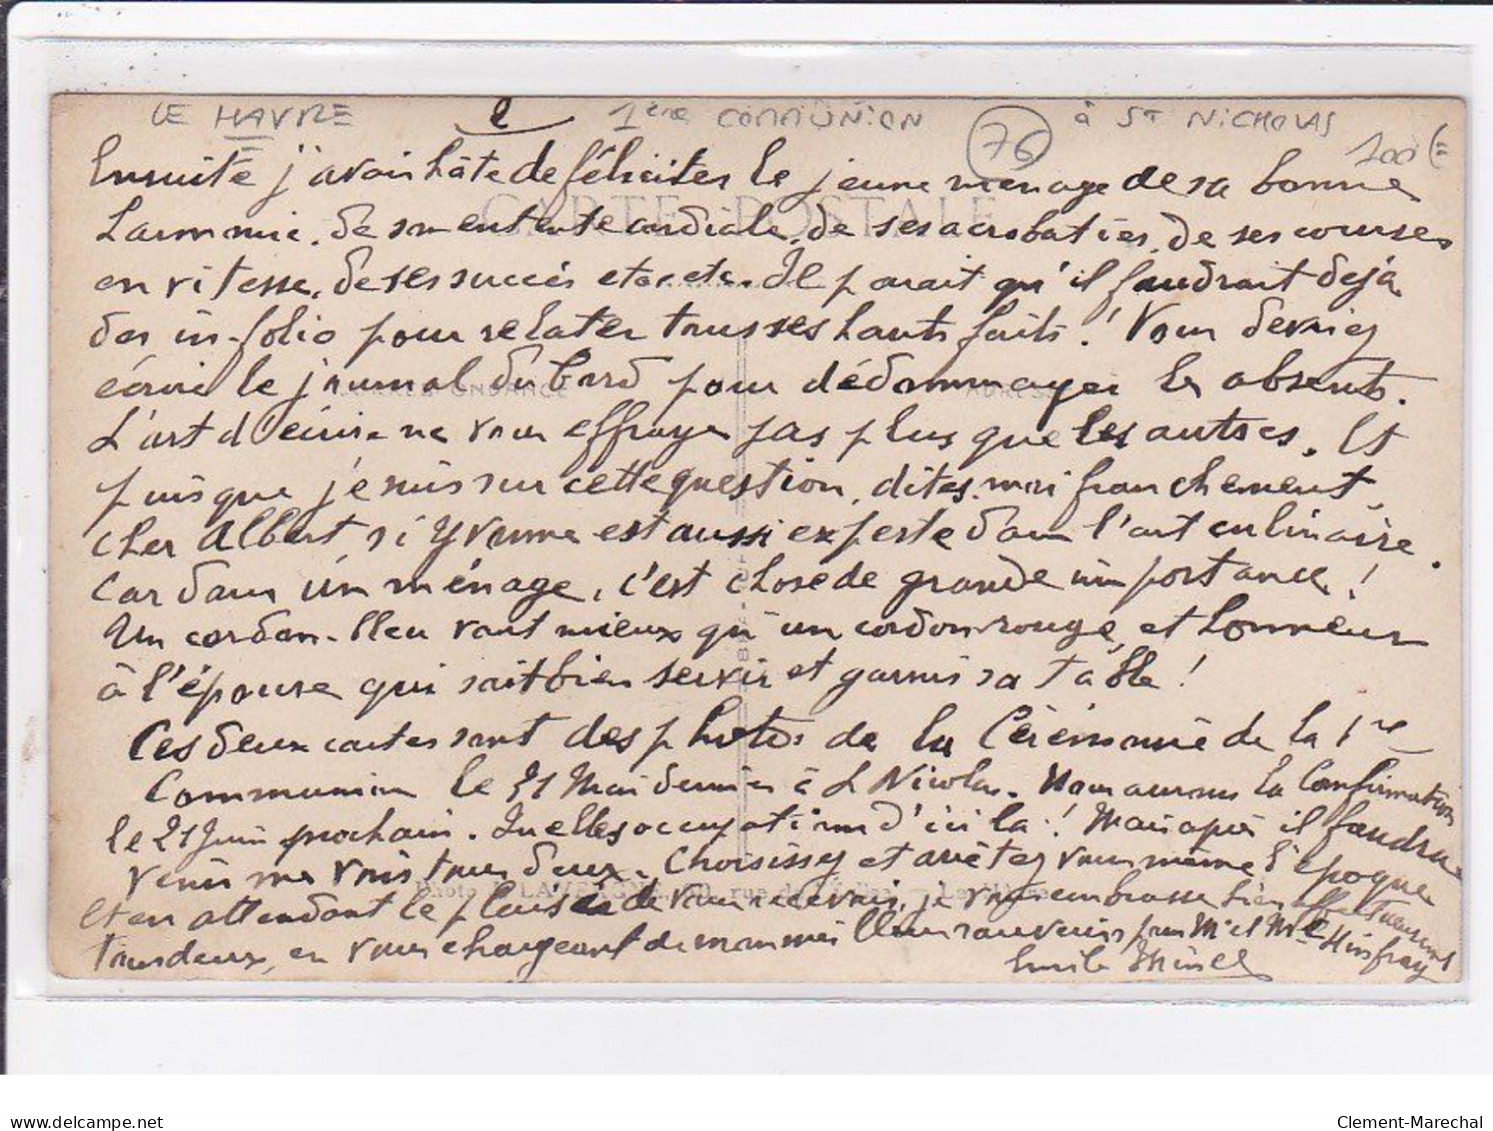 LE HAVRE 2 1ère COMMUNION 76 à ST NICHOLAS
100 €
Ensuite j'avais hâte de féliciter le jeune ménage de sa bonne
harmonie, de son entente cordiale, de ses acrobaties, de ses courses
en vitesse, de ses succès etc etc. Il parait qu'il faudrait dejà
des in-folio pour relater tous ses hauts faits ! Vous devriez
écrire le journal du bord pour dédommager les absents.
L'art d'écrire ne vous effraye pas plus que les autres. Et
puisque je suis sur cette question, dites-moi franchement,
cher Albert, si Yvonne est aussi experte dans l'art culinaire.
Car dans un ménage, c'est chose de grande importance !
Un cordon-bleu vaut mieux qu'un cordon-rouge, et honneur
à l'épouse qui sait bien servir et garnir sa table !
Ces deux cartes sont des photos de la Cérémonie de la 1re
Communion le 31 Mai dernier à St Nicolas. Nous aurons la Confirmation
le 21 Juin prochain. Quelles occupations d'ici là ! Mais après il faudra
venir me voir tous deux. Choisissez et arrêtez vous même l'époque
Et en attendant le plaisir de vous recevoir, je vous embrasse bien affectueusement
tous deux, en vous chargeant de mes meilleurs souvenirs pour Mr et Mme Hinfray
Emile
CARTE POSTALE
CORRESPONDANCE
ADRESSE
Clement-Marechal
delcampe.net